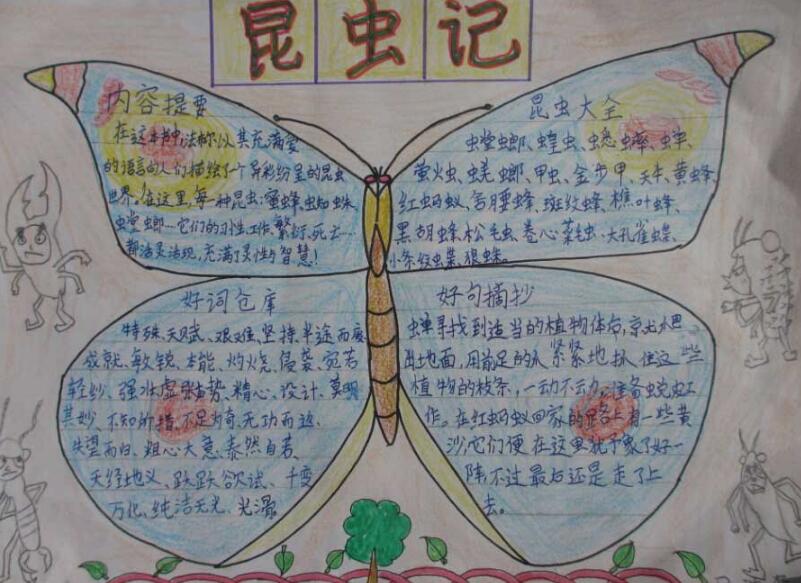 昆虫记
内容提要
在这本书中法布尔以其充满爱
的语言向人们描绘了一个异彩纷呈的昆虫
世界。在这里,每一种昆虫:蜜蜂、蜘蛛、
螳螂…它们的习性、工作、繁衍、死亡…
都活灵活现,充满了灵性与智慧!
昆虫大全
螳螂、蝗虫、蟋蟀、蝉、
萤火虫、蜣螂、甲虫、金步甲、天牛、黄蜂、
红蚂蚁、舌腰蜂、斑纹蜂、樵叶蜂、
黑胡蜂、松毛虫、卷心菜毛虫、大孔雀蝶、
小条纹蝶、狼蛛。
好词仓库
特殊、天赋、艰难、坚持、半途而废
成就、敏锐、本能、灼烧、侵袭、宛若
轻纱、强壮、虚张声势、精心、设计、莫明
其妙、不知所措、不足为奇、无功而返、
失望而归、粗心大意、泰然自若、
天经地义、跃跃欲试、千变
万化、纯洁无光、光溜
好句摘抄
蝉寻找到适当的植物体后,就爬
出地面,用前足的爪紧紧地抓住这些
植物的枝条,一动不动,准备蜕皮工
作。在红蚂蚁回家的路上有一些黄
沙,它们便在这里犹豫了好一
阵,不过最后还是走了上
去。